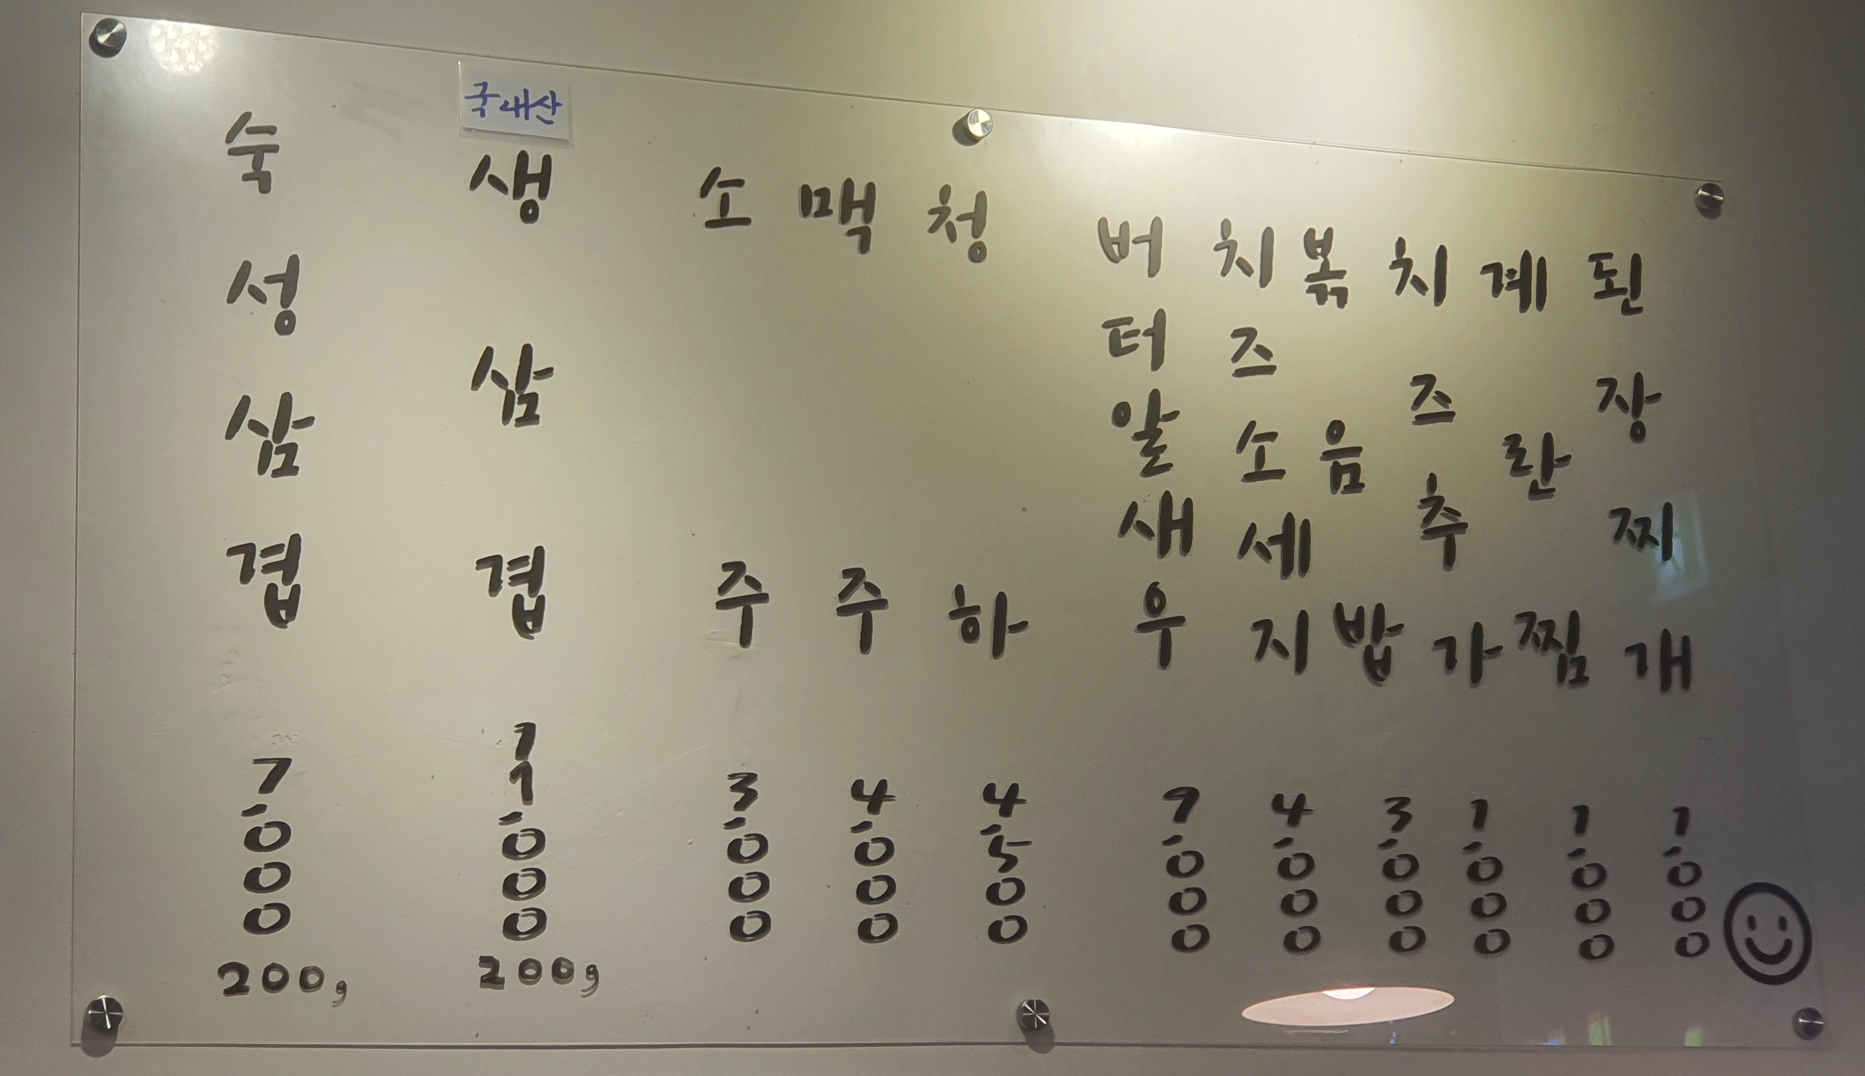 숙성삼겹 7,000 200g
국내산
생삼겹 11,000 200g
소주 3,000
맥주 4,000
청하 4,500
버터알새우 9,000
치즈소세지 4,000
볶음밥 3,000
치즈추가 1,000
계란찜 1,000
된장찌개 1,000